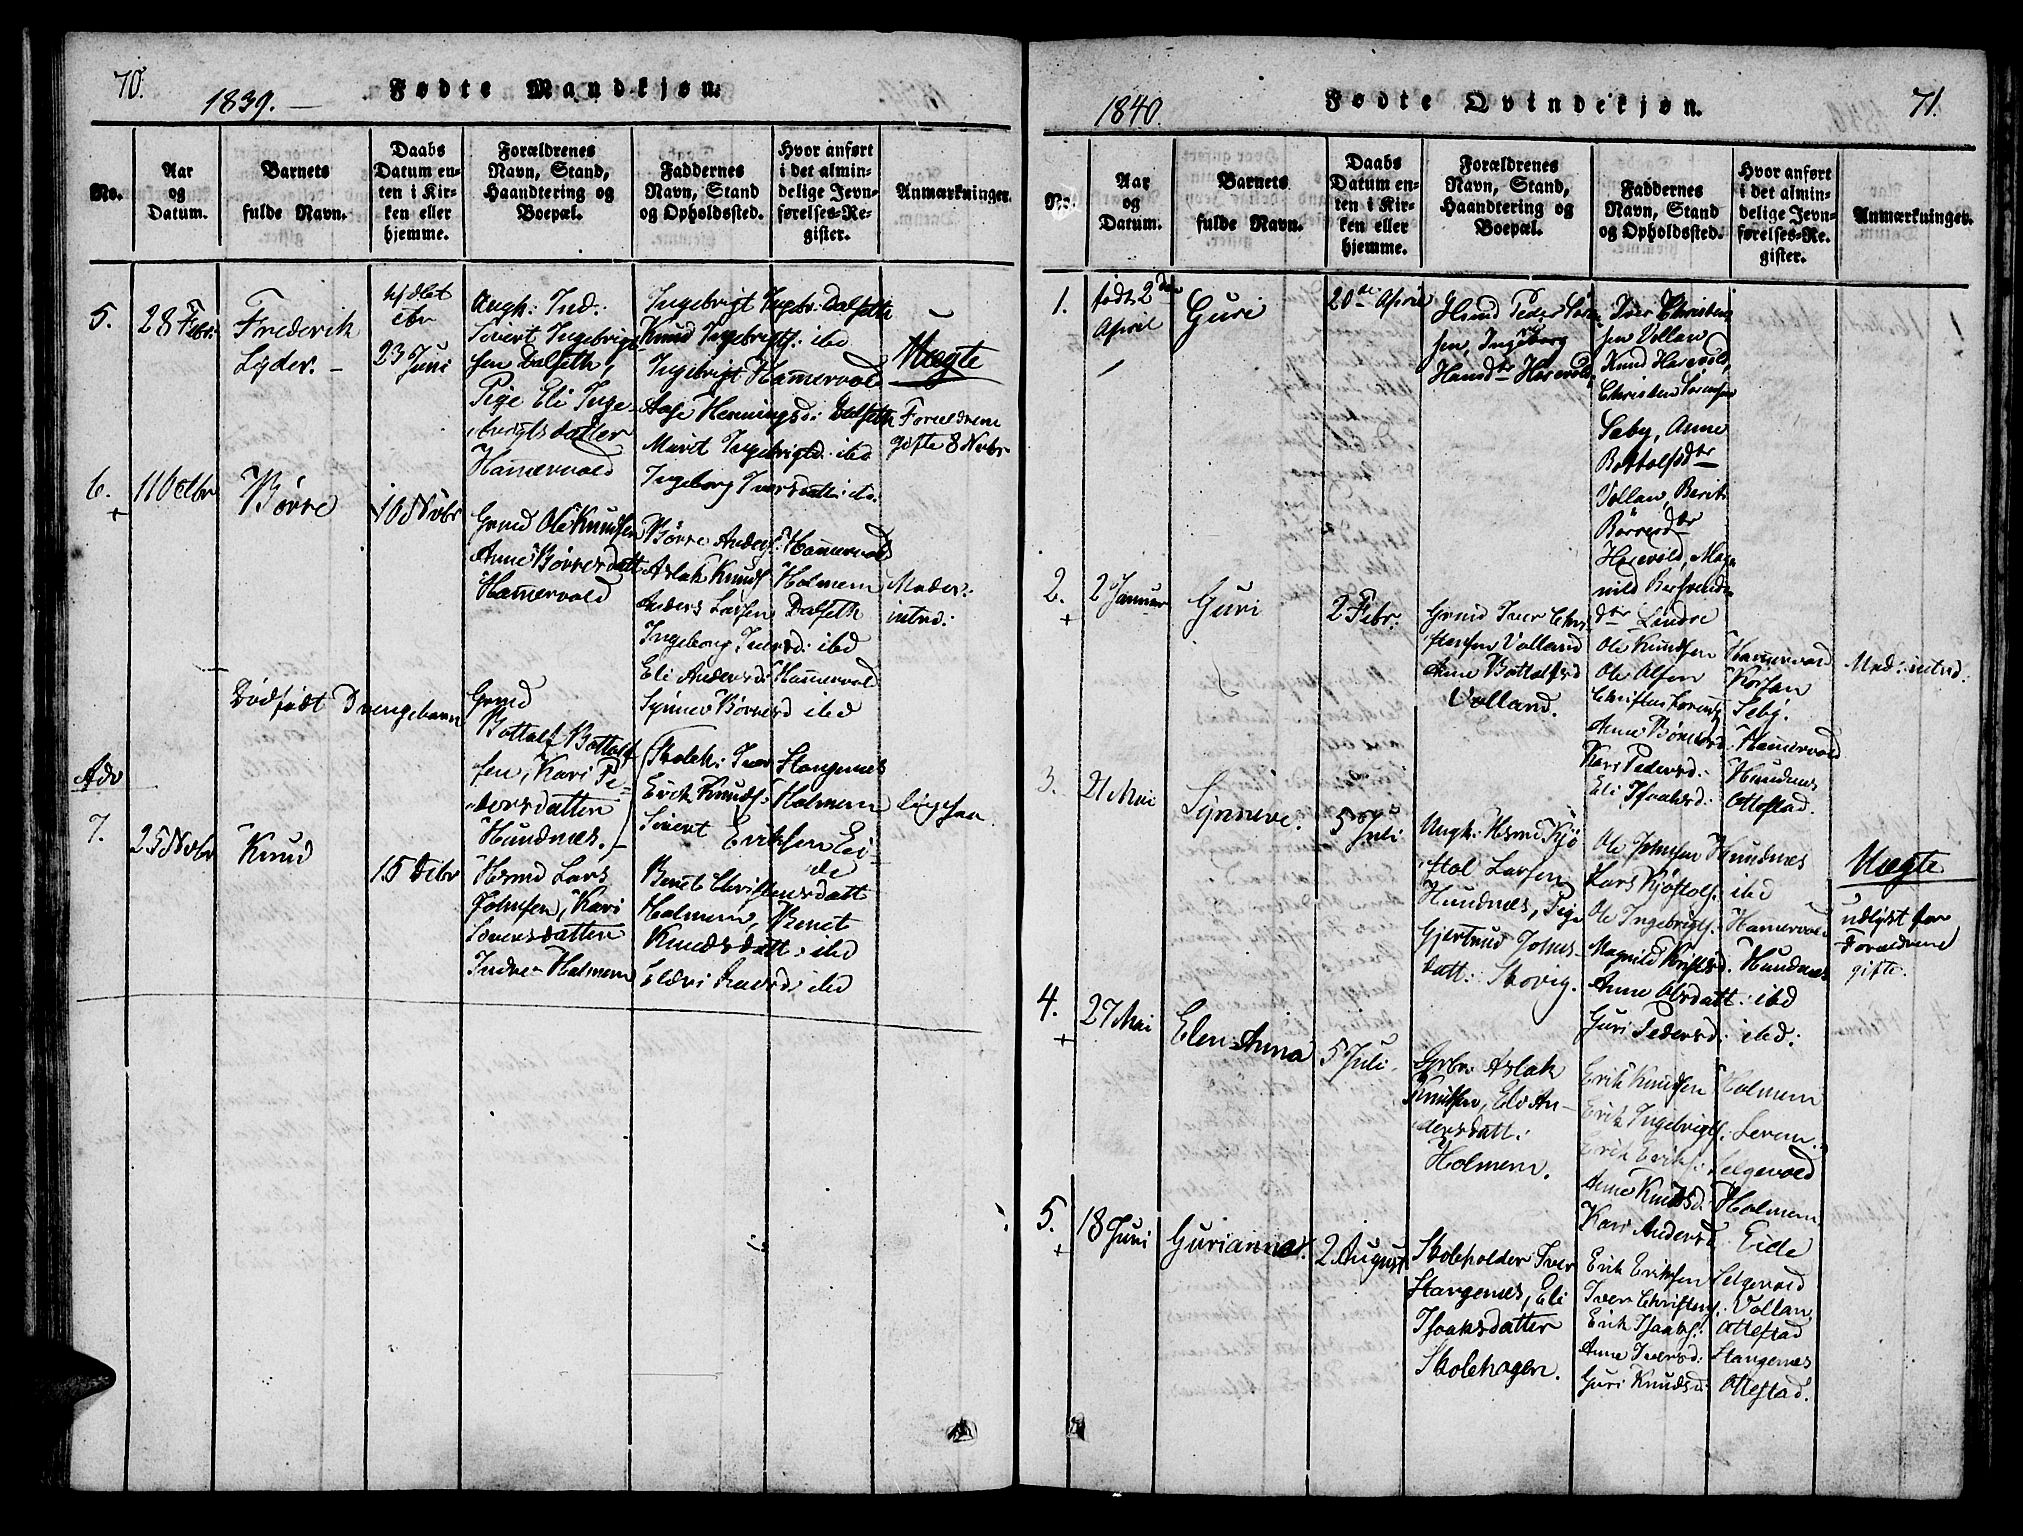 70.
1839. —
Fødte Mandkjøn.
No.
Aar
og
Datum.
Barnets
fulde Navn.
Daabs
Datum en-
ten i Kir-
ken eller
hjemme.
Forældrenes
Navn, Stand,
Haandtering og
Boepæl.
Faddernes
Navn, Stand
og Opholdssted.
Hvor anført
i det almin-
delige Jevn-
førelses-Re-
gister.
Anmærkninger.
5.
28 Febr:
Frederik
Lyder. —
23 Juni
Ungk: Ind.
Sivert Ingebrigt-
sen Dalseth,
Pige Eli Inge-
brigtsdatter
Hamervold
Ingebrigt Ingebr: Dalseth
Knud Ingebrigts: ibd
Ingebrigt Hamervold
Aase Henningsd: Dalseth
Marit Ingebrigtsd: ibd
Ingeborg Iversdatt: ibd.
Uægte
Forældrene
gifte 8 Novbr
6.
+
11 Octbr
Børre
10 Novbr
Grmd Ole Knudsen
Anne Børresdatt
Hamervold
Børre Anders: Hamervold
Aslak Knuds: Holmem
Anders Larsen Dalseth
Ingeborg Iversd: ibd
Eli Andersd: Hamervold
Synnev Børresd ibd
Moder:
intrd:
Dødfødt Drengebarn
Grmd
Bottolf Bottolf-
sen, Kari Pe-
dersdatter
Hundnæs. —
Skoleh: Iver Stangenes
Erik Knuds: Holmem
Sivert Eriksen Ei-
de
ligesaa
Adv
7.
25 Novbr
Knud
15 Decbr
Hsmd Lars
Johnsen, Kari
Siversdatter
Indre Holmem
Berete Christensdatt
Holmem, Beret
Knudsdatt: ibd
Eldri Knudsd: ibd
1840.
Fødte Qvindekjøn.
71.
No.
Aar
og
Datum.
Barnets
fulde Navn.
Daabs
Datum en-
ten i Kir-
ken eller
hjemme.
Forældrenes
Navn, Stand,
Haandtering og
Boepæl.
Faddernes
Navn, Stand
og Opholdssted.
Hvor anført
i det almin-
delige Jevn-
førelses-Re-
gister.
Anmærkninger.
1.
født 2den
April
Guri
20de April
Hsmd Peder Søren-
sen, Ingeborg
Hansdtr Horsvold
Iver Christen-
sen Vollan,
Knud Horsvold,
Christen Sørensen
Sæby, Anne
Bottolfsdtr
Vollan, Berit
Børresdtr
Horsvold, Mag-
nild Bersvends-
dtr Lindse
2.
+
2 Januar
Guri
2 Febr:
Grmd Iver Chri-
stensen Volland
Anne Bottolfsd
Volland.
Ole Knudsen Hamervold
Ole Olsen Korsan
Christen Sørens: Sæby.
Anne Børresd: Hamervold
Kari Pedersd: Hundnæs
Eli Isaaksd: Ottestad.
Mod: intrd.
3.
21 Mai
Synneve.
5 Juli
Ungk: Hsmd Kjø-
stol Larsen
Hundnæs, Pige
Gjertrud Johns-
datt: Skovig.
Ole Johnsen Hundnæs
Lars Kjøstols: ibd
Ole Ingebrigts: Hamervold
Magnild Kristensd: Hundnæs
Anne Olsdatt: ibd
Guri Pedersd: ibd:
Uægte
udlyst for
Forældrene
gifte.
4.
+
27 Mai
Elen Anna
5 Juli.
Grbr Aslak
Knudsen, Eli An-
dersdatt:
Holmem.
Erik Knudsen Holmem
Erik Ingebrigts: Levem:
Erik Eriks: Selgevold
Anne Knudsd: Holmem
Kari Andersd: Eide
5.
+
18 Juni
Gurianna.
2 August
Skoleholder Iver
Stangenæs, Eli
Isaaksdatter
Skolehagen.
Erik Eriksen Selgevold
Iver Christens: Vollan
Erik Isaaks: Ottestad
Anne Iversd: Stangenæs
Guri Knudsd: Ottestad.